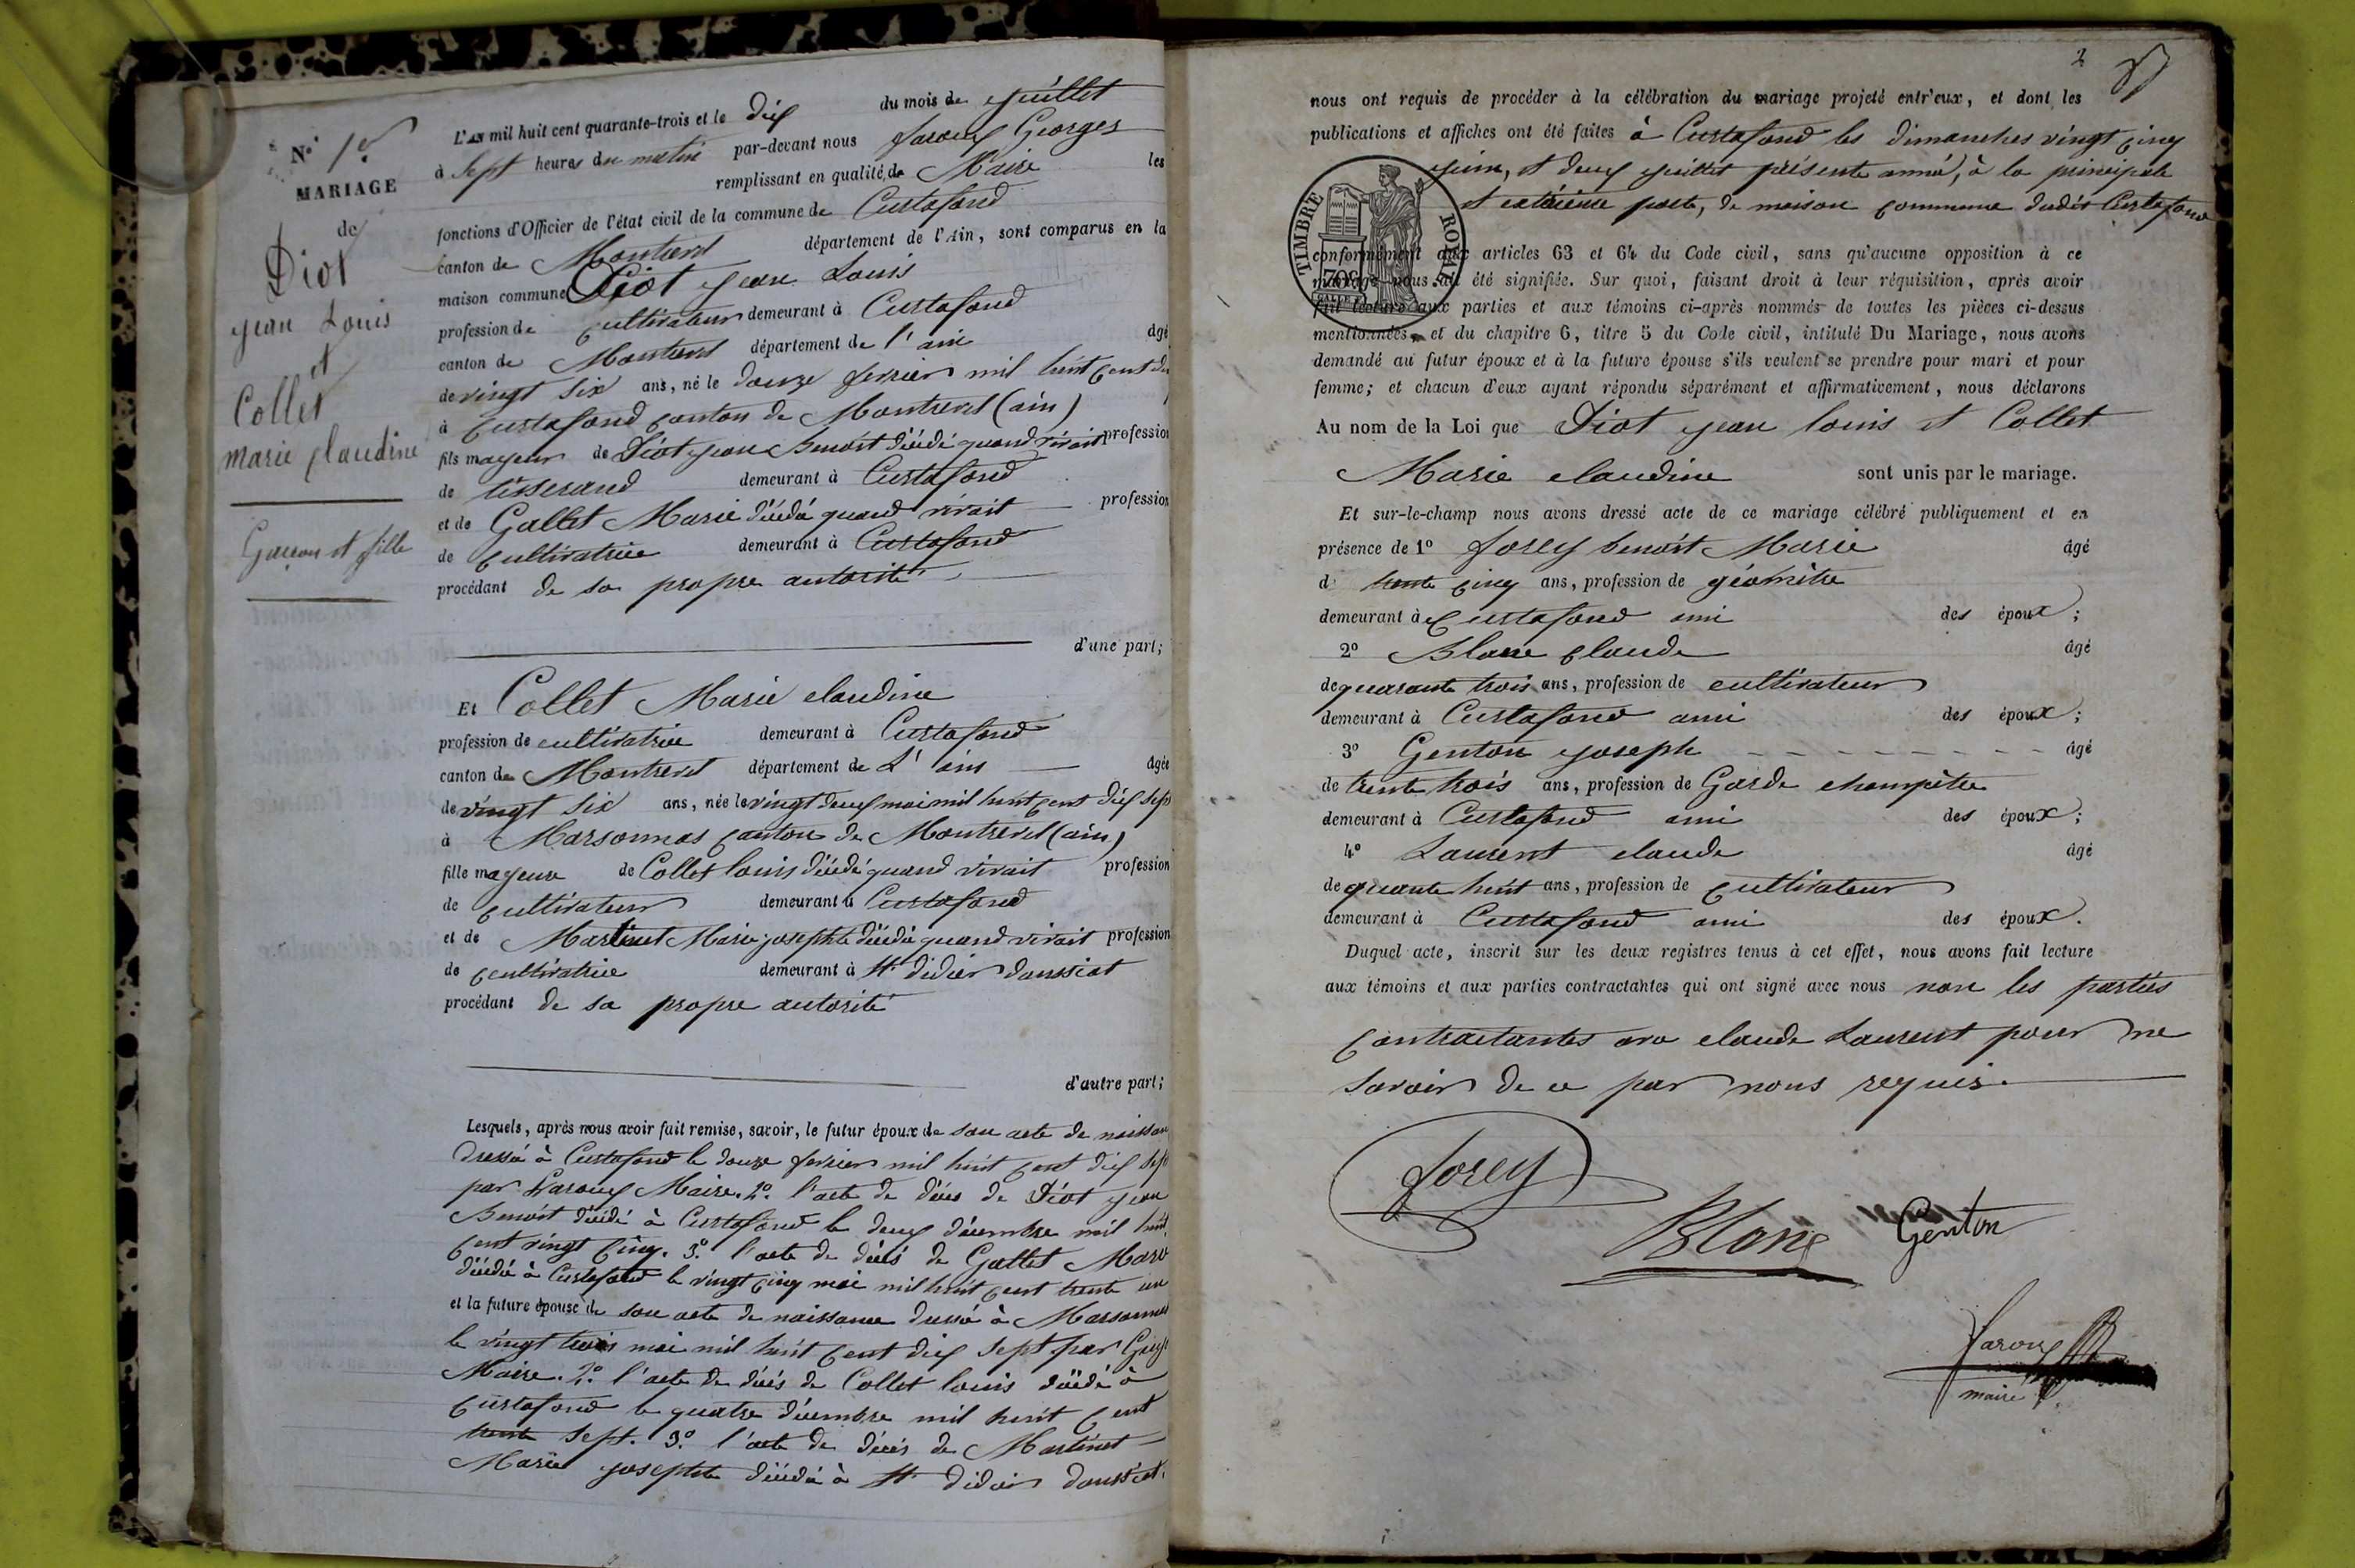 N° 1er
MARIAGE
de
Diot
jean Louis
et
Collet
marie claudine
Garçon et fille
L'AN mil huit cent quarante-trois et le dix du mois de juillet
à Sept heures du matin par-devant nous faroux Georges
remplissant en qualité de Maire les
fonctions d'Officier de l'état civil de la commune de Curtafond
canton de Montrevel département de l'Ain, sont comparus en la
maison commune Diot jean Louis
profession de cultivateur demeurant à Curtafond
canton de Montrevel département de l'ain âgé
de vingt six ans, né le douze fevrier mil huit cent di
à Curtafond canton de Montrevel (ain)
fils mageur de Diot jean Benoit décédé quand vivait profession
de tisserand demeurant à Curtafond
et de Gallet Marie décédé quand vivait profession
de cultivatrice demeurant à Curtafond
procédant de sa propre autorité
d'une part;
Et Collet Marie claudine
profession de cultivatrice demeurant à Curtafond
canton de Montrevel département de L'ain âgée
de vingt six ans, née le vingt deux mai mil huit cent dix sept
à Marsonnas canton de Montrevel (ain)
fille mageure de Collet louis décédé quand vivait profession
de cultivateur demeurant à Curtafond
et de Martinet Marie josephte décédé quand vivait profession
de cultivatrice demeurant à St didier daussiat
procédant de sa propre autorité
d'autre part;
Lesquels, après nous avoir fait remise, savoir, le futur époux de son acte de naissan
dressé à Curtafond le douze fevrier mil huit cent dix sept
par faroux Maire. 2° l'acte de décés de Diot jean
Benoit décédé à Curtafond le deux décembre mil huit
cent vingt cinq. 3° l'acte de décés de Gallet Marie
décédé à Curtafond le vingt cinq mai mil huit cent trente un
et la future épouse de son acte de naissance dressé à Marsonnas
le vingt trois mai mil huit cent dix sept par
Maire. 2° l'acte de décés de Collet louis décédé à
Curtafond le quatre décembre mil huit cent
trente sept. 3° l'acte de décés de Martinet
Marie josephte décédé à St didier daussiat
2
nous ont requis de procéder à la célébration du mariage projeté entr'eux, et dont les
publications et affiches ont été faites à Curtafond les dimanches vingt cinq
juin, et deux juillet présente année, à la principale
et extérieure porte, de maison commune dudit Curtafond
TIMBRE ROYAL
conformément aux articles 63 et 64 du Code civil, sans qu'aucune opposition à ce
mariage nous ait été signifiée. Sur quoi, faisant droit à leur réquisition, après avoir
fait lecture aux parties et aux témoins ci-après nommés de toutes les pièces ci-dessus
mentionnées, et du chapitre 6, titre 5 du Code civil, intitulé Du Mariage, nous avons
demandé au futur époux et à la future épouse s'ils veulent se prendre pour mari et pour
femme; et chacun d'eux ayant répondu séparément et affirmativement, nous déclarons
Au nom de la Loi que Diot jean louis et Collet
Marie claudine sont unis par le mariage.
Et sur-le-champ nous avons dressé acte de ce mariage célébré publiquement et en
présence de 1° forey benoit Marie âgé
d trente cinq ans, profession de géomètre
demeurant à Curtafond ami des époux;
2° Blanc claude âgé
de quarante trois ans, profession de cultivateur
demeurant à Curtafond ami des époux;
3° Genton joseph âgé
de trente trois ans, profession de Garde champêtre
demeurant à Curtafond ami des époux;
4° Laurent claude âgé
de quante huit ans, profession de cultivateur
demeurant à Curtafond ami des époux.
Duquel acte, inscrit sur les deux registres tenus à cet effet, nous avons fait lecture
aux témoins et aux parties contractantes qui ont signé avec nous non les parties
contractantes claude Laurent pour ne
savoir de ce par nous requis.
forey
Blanc Genton
faroux
maire